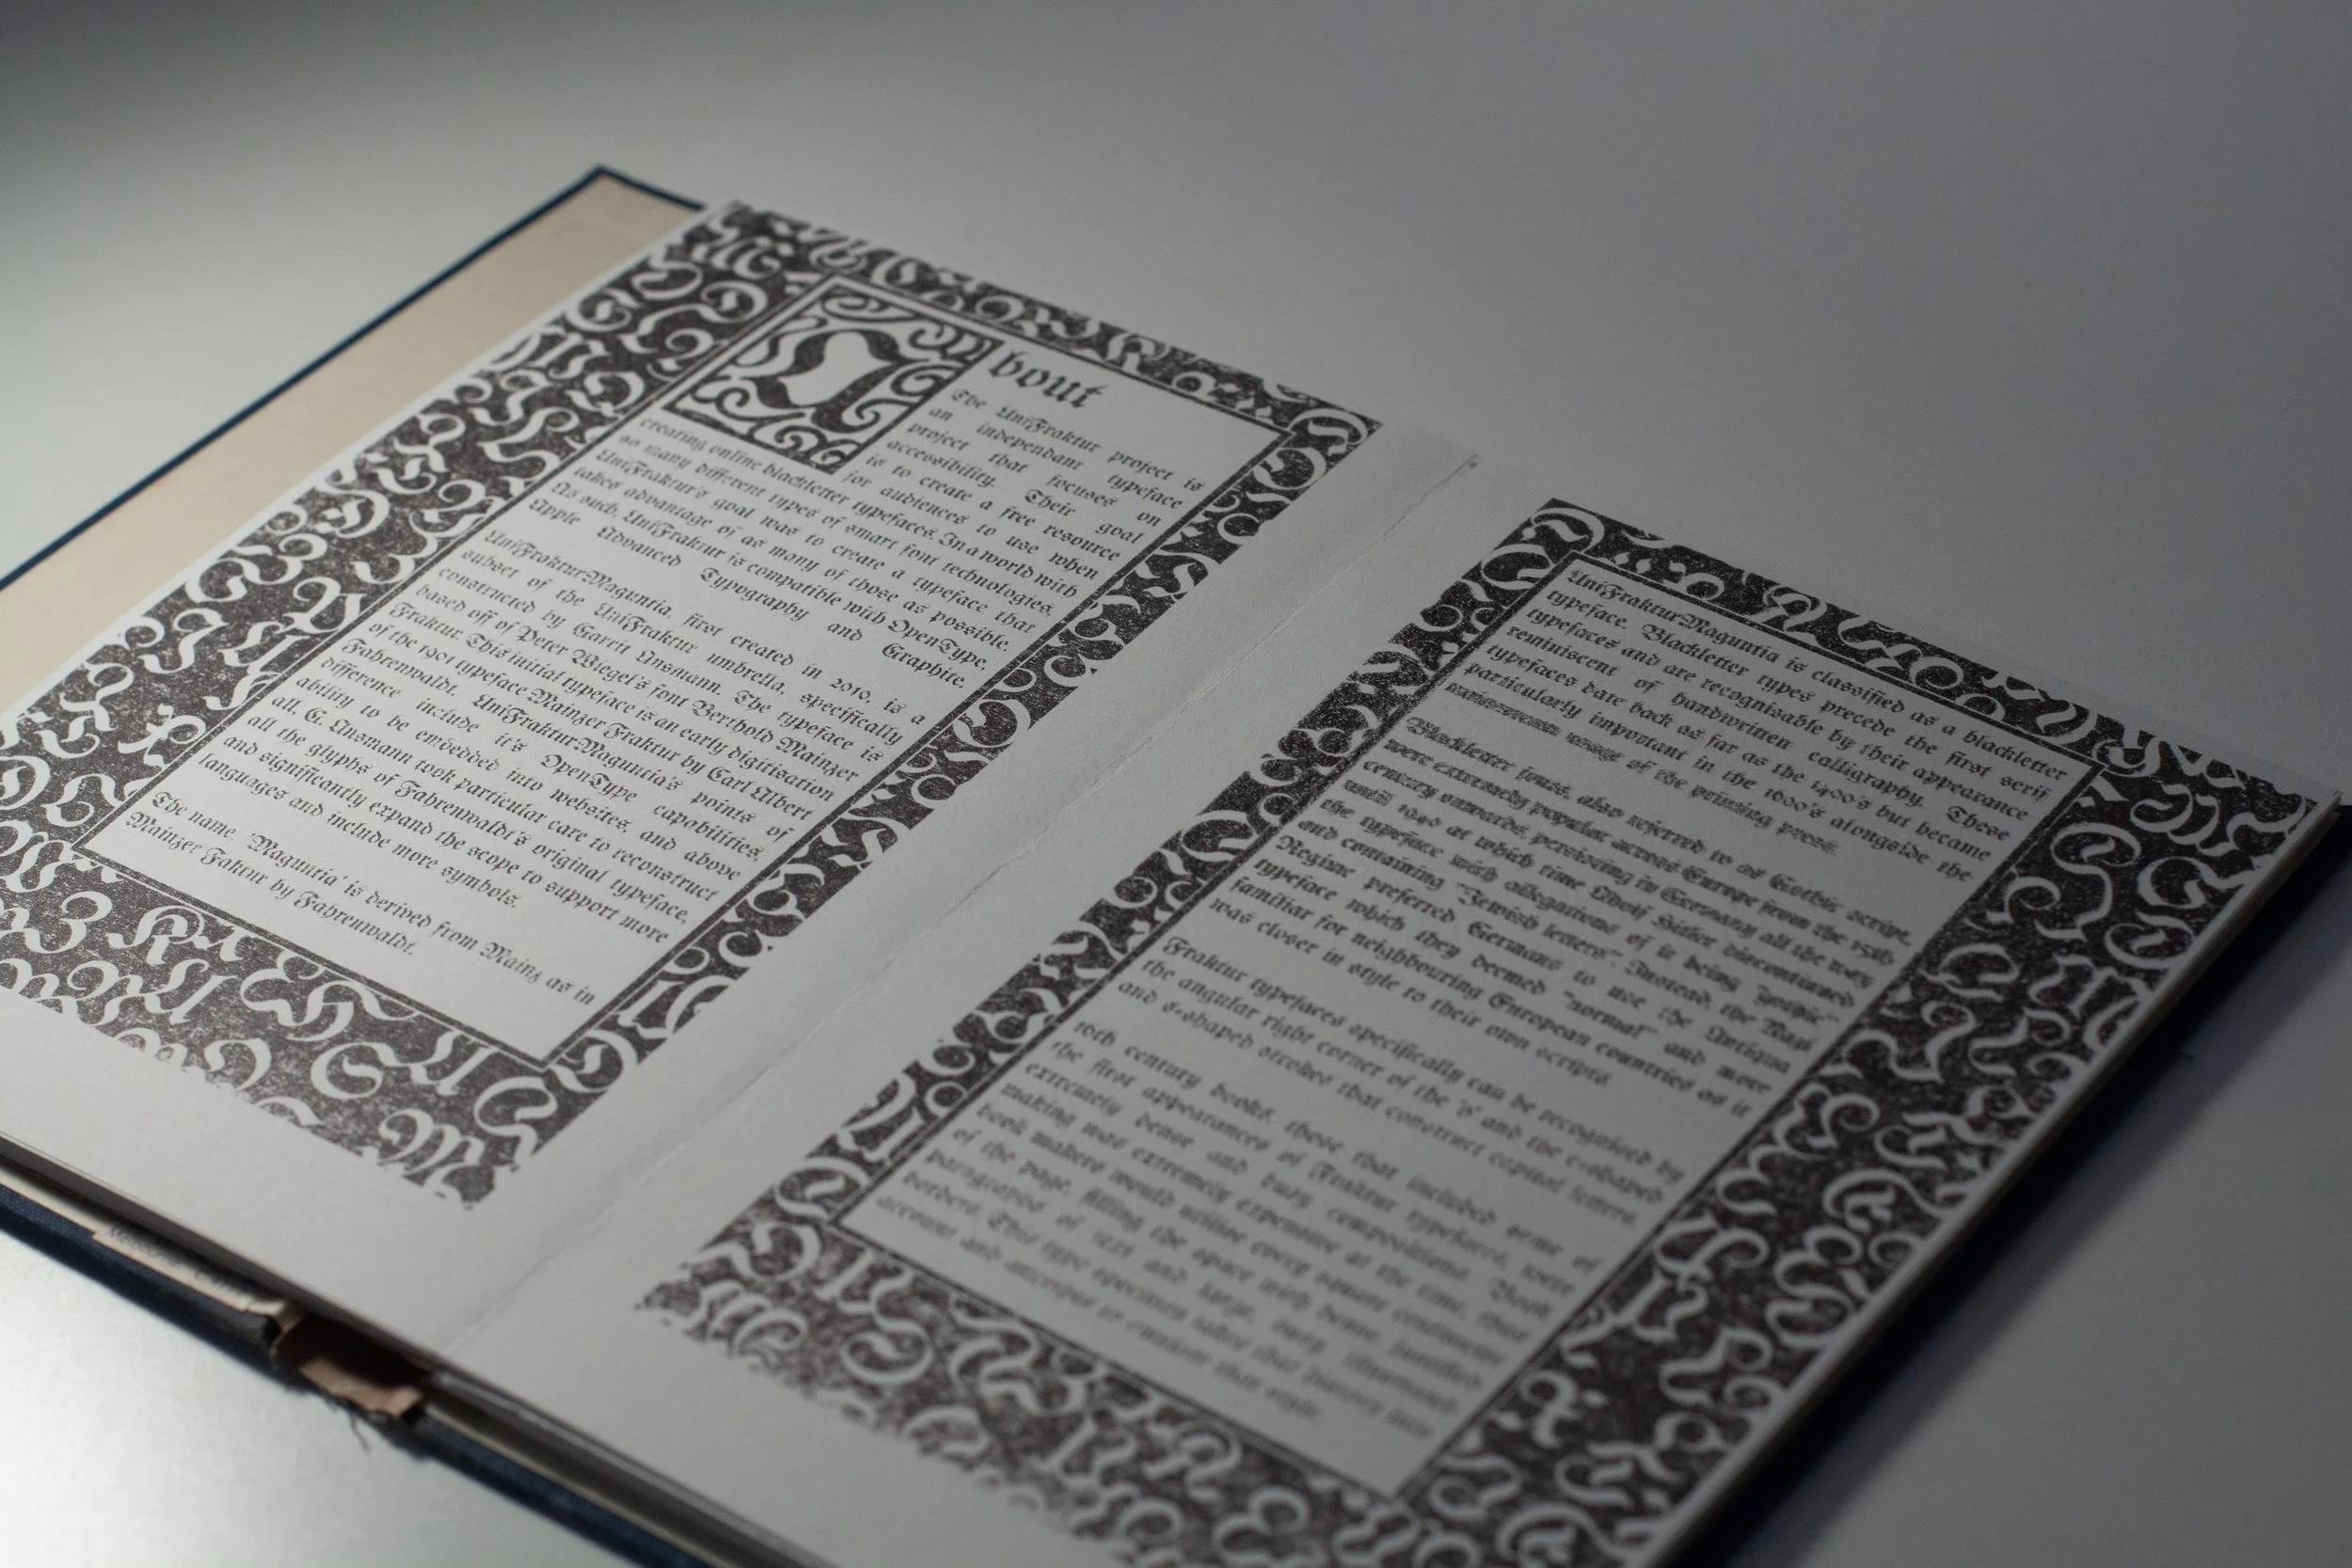 About
The UniFraktur project is
an independant typeface
project that focuses on
accessibility. Their goal
is to create a free resource
for audiences to use when
creating online blackletter typefaces. In a world with
so many different types of smart font technologies,
UniFraktur's goal was to create a typeface that
takes advantage of as many of those as possible.
As such, UniFraktur is compatible with OpenType,
Apple Advanced Typography and Graphite.
UniFrakturMaguntia, first created in 2010, is a
subset of the UniFraktur umbrella, specifically
constructed by Gerrit Ansmann. The typeface is
based off of Peter Wiegel's font Berthold Mainzer
Fraktur. This initial typeface is an early digitisation
of the 1901 typeface Mainzer Fraktur by Carl Albert
Fahrenwaldt. UniFrakturMaguntia's points of
difference include it's OpenType capabilities,
ability to be embedded into websites, and above
all, G. Ansmann took particular care to reconstruct
all the glyphs of Fahrenwaldt's original typeface,
and significantly expand the scope to support more
languages and include more symbols.
The name, 'Maguntia' is derived from Mainz as in
Mainzer Faktur by Fahrenwaldt.
UniFrakturMaguntia is classified as a blackletter
typeface. Blackletter types precede the first serif
typefaces and are recognisable by their appearance
reminiscent of handwritten calligraphy. These
typefaces date back as far as the 1400's but became
particularly important in the 1600's alongside the
usage of the printing press.
Blackletter fonts, also referred to as Gothic script,
were extremely popular across Europe from the 15th
century onwards, persisting in Germany all the way
until 1940 at which time Adolf Hitler discontinued
the typeface with allegations of it being "gothic"
and containing "Jewish letters". Instead, the Nazi
Regime preferred Germans to use the Antiqua
typeface which they deemed "normal" and more
familiar for neighbouring European countries as it
was closer in style to their own scripts.
Fraktur typefaces specifically can be recognised by
the angular right corner of the 's' and the c-shaped
and s-shaped strokes that construct capital letters.
16th century books, those that included some of
the first appearances of Fraktur typefaces, were
extremely dense and busy compositions. Book
making was extremely expensive at the time, thus
book makers would utilise every square centimetre
of the page, filling the space with dense, justified
paragraphs of text and large, busy, illustrated
borders. This type specimen takes that history into
account and attempts to emulate that style.